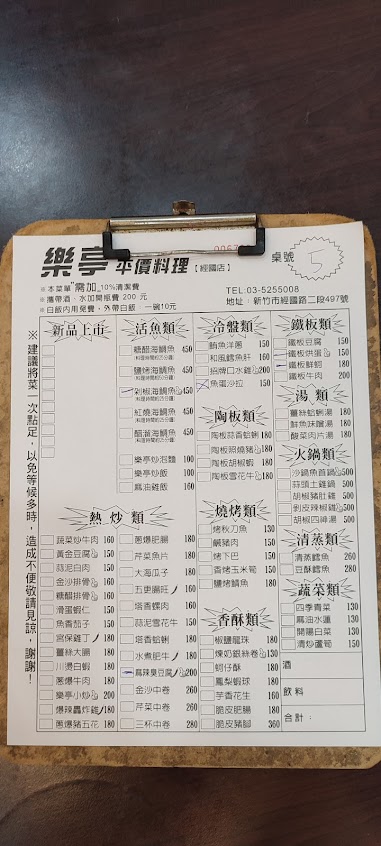 樂亭 平價料理【經國店】
桌號
5
※本菜單需加10%清潔費
※攜帶酒、水加開瓶費 200 元
※白飯內用免費,外帶白飯 一碗10元
TEL:03-5255008
地址:新竹市經國路二段497號
※建議將菜一次點足,以免等候多時,造成不便敬請見諒,謝謝!
新品上市
活魚類
糖醋海鱺魚 450
鹽烤海鱺魚 450
剁椒海鱺魚 450
紅燒海鱺魚 450
醋溜海鱺魚 450
樂亭炒泡麵 100
樂亭炒飯 100
麻油雞飯 160
冷盤類
鮪魚洋蔥 150
和風鱈魚肝 160
招牌口水雞 200
魚蛋沙拉 150
陶板類
陶板蒜香蛤蜊 180
陶板照燒豬 180
陶板胡椒蝦 180
陶板雪花牛 180
鐵板類
鐵板豆腐 150
鐵板烘蛋 150
鐵板鮮蚵 180
鐵板牛肉 200
湯類
薑絲蛤蜊湯 180
鮮魚味噌湯 180
酸菜肉片湯 180
火鍋類
沙鍋魚首鍋 500
蒜頭土雞鍋 500
胡椒豬肚鍋 500
剝皮辣椒雞 500
胡椒四神湯 500
清蒸類
清蒸鱈魚 260
豆酥鱈魚 280
蔬菜類
四季青菜 130
麻油水蓮 150
開陽白菜 150
清炒蘆筍 150
熱炒類
蔬菜炒牛肉 160
黃金豆腐 150
蒜泥白肉 150
金沙排骨 160
糖醋排骨 160
滑蛋蝦仁 150
魚香茄子 150
宮保雞丁 180
薑絲大腸 180
川燙白蝦 180
蔥爆牛肉 180
樂亭小炒 200
爆辣轟炸雞 180
蔥爆豬五花 180
蔥爆肥腸 180
芹菜魚片 180
大海瓜子 180
五更腸旺 160
塔香螺肉 160
蒜泥雪花牛 150
塔香蛤蜊 180
水煮肥牛 180
麻辣臭豆腐 200
金沙中卷 260
芹菜中卷 260
三杯中卷 280
燒烤類
烤秋刀魚 130
鹹豬肉 150
烤下巴 150
香烤玉米筍 150
鹽烤鯖魚 180
香酥類
椒鹽龍珠 180
煉奶銀絲卷 130
蚵仔酥 180
鳳梨蝦球 180
芋香花生 160
脆皮肥腸 180
脆皮豬腳 360
酒
飲料
合計: